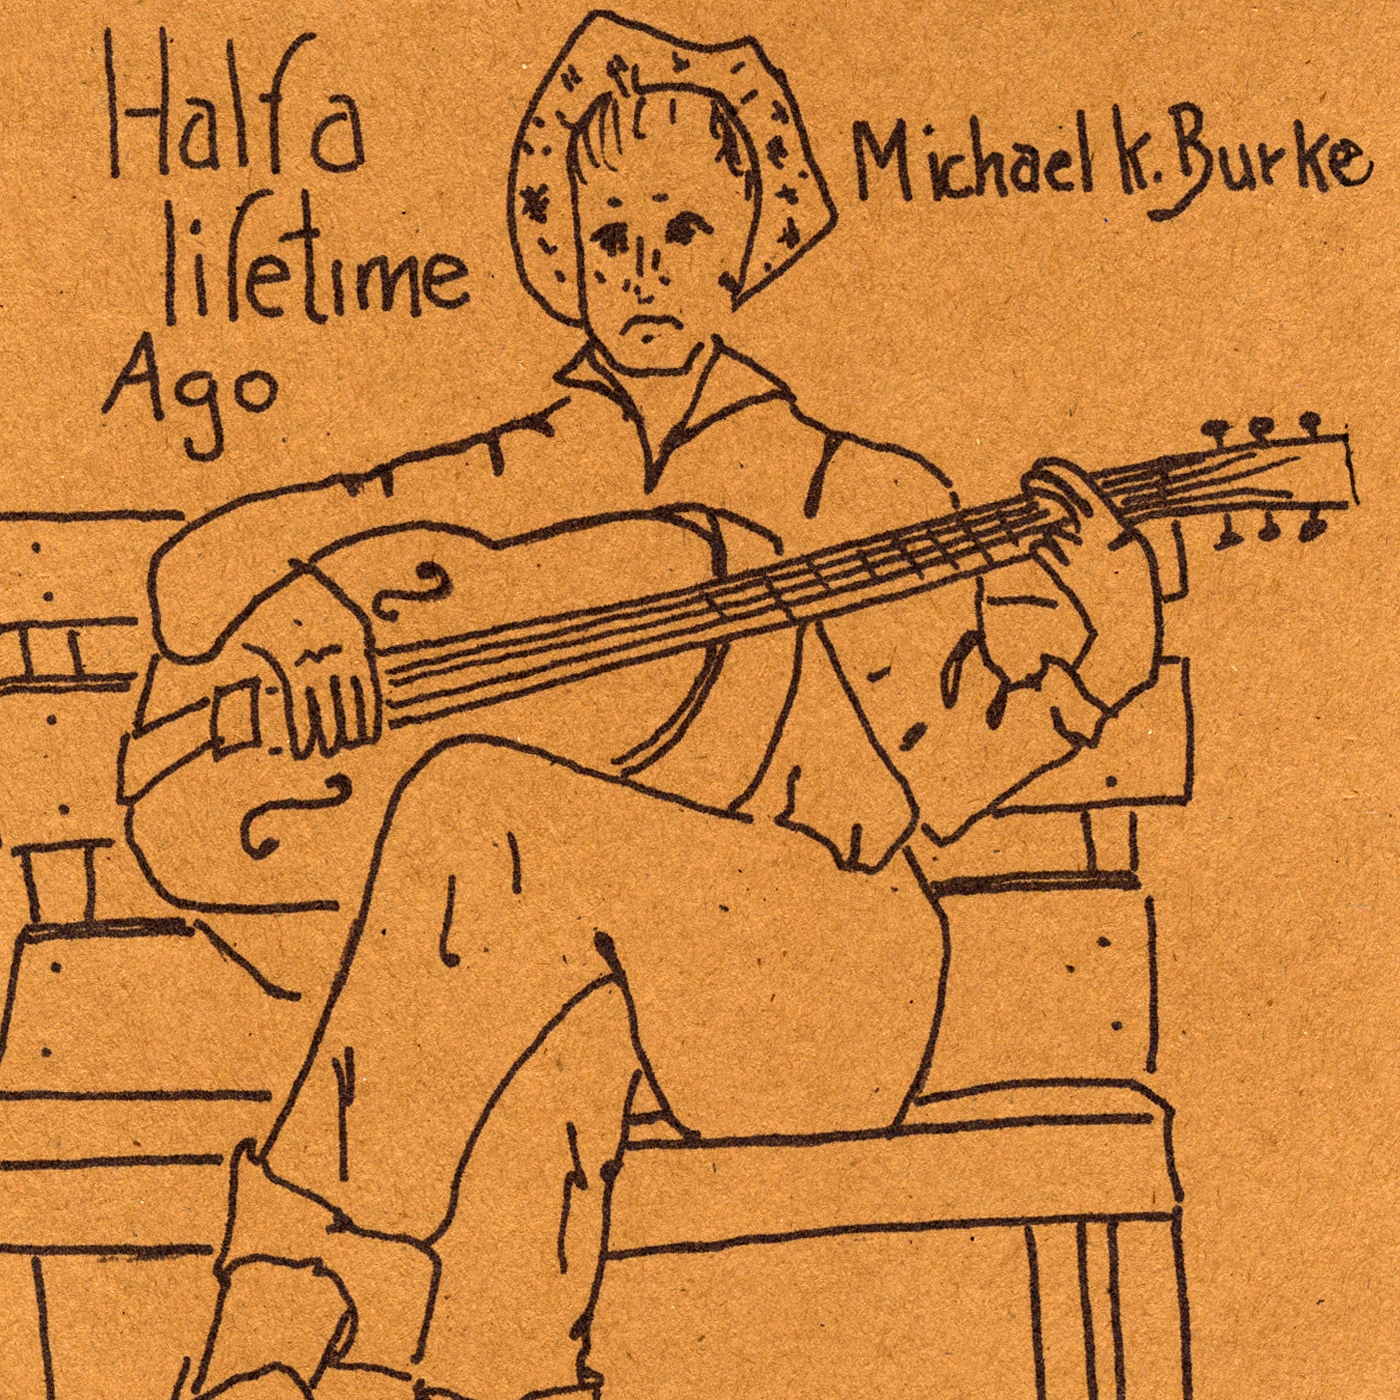 Half a
lifetime
Ago
Michael k. Burke